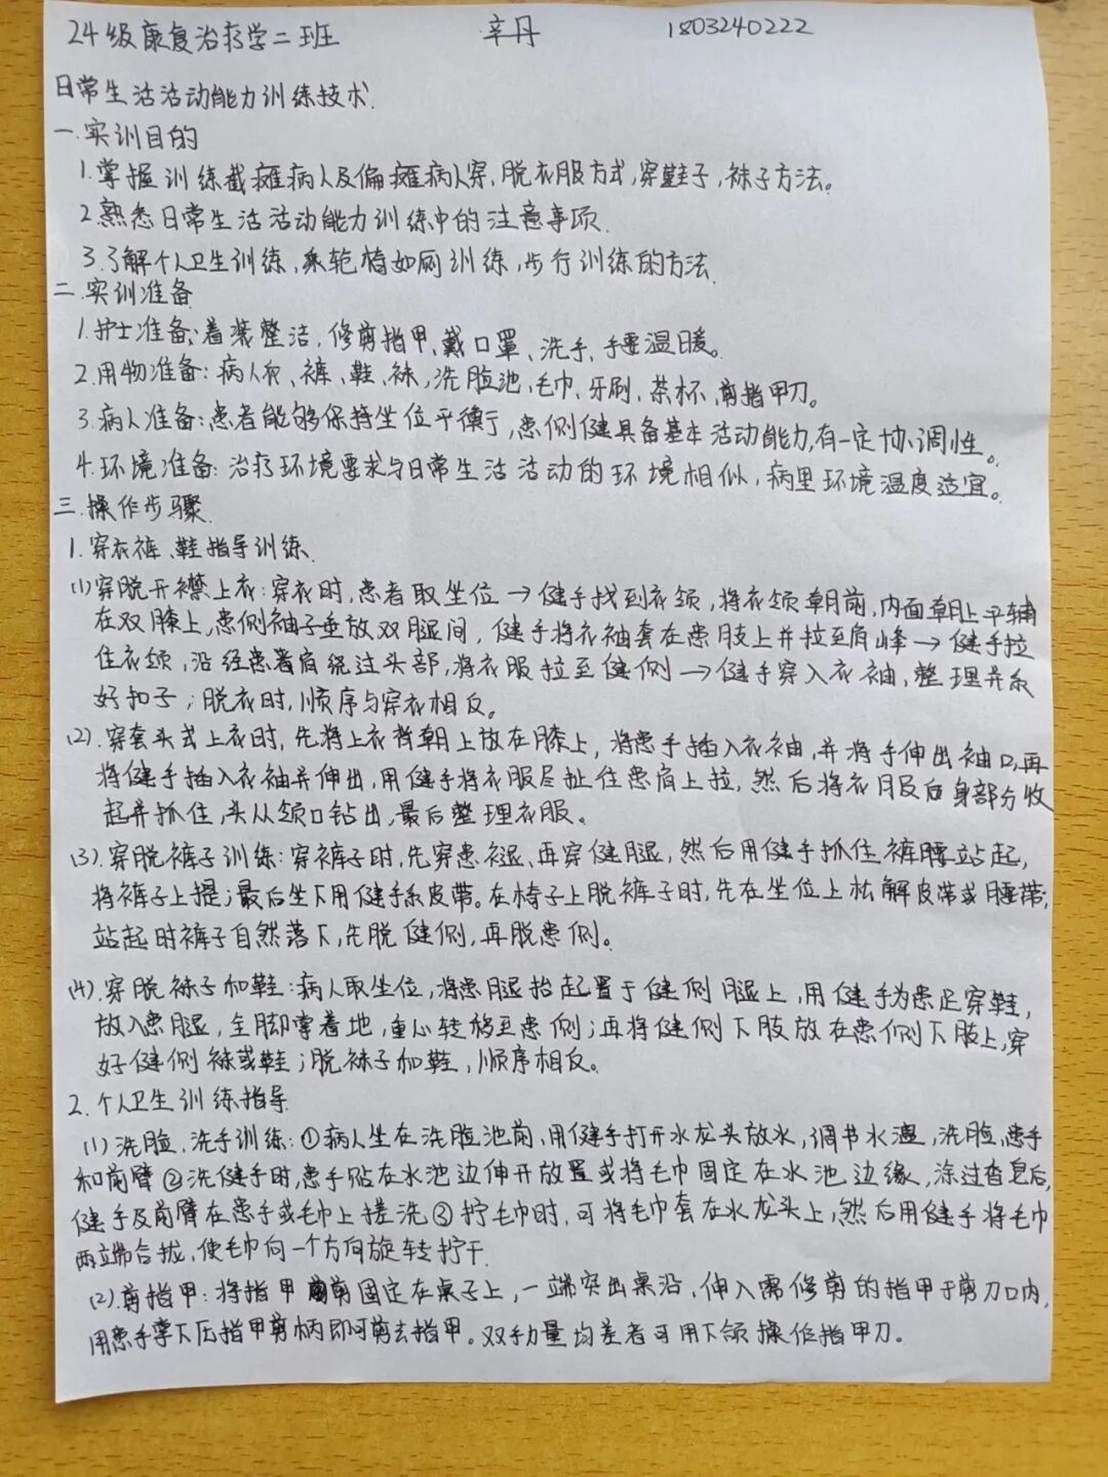 24级康复治疗学二班 辛丹 1803240222
日常生活活动能力训练技术.
一.实训目的
1.掌握训练截瘫病人及偏瘫病人穿,脱衣服方式,穿鞋子,袜子方法。
2.熟悉日常生活活动能力训练中的注意事项.
3.了解个人卫生训练,乘轮椅如厕训练,步行训练的方法.
二.实训准备
1.护士准备:着装整洁,修剪指甲、戴口罩、洗手、手要温暖。
2.用物准备:病人衣、裤、鞋、袜,洗脸池、毛巾、牙刷、茶杯、剪指甲刀。
3.病人准备:患者能够保持坐位平衡,患侧健具备基本活动能力,有一定协调性。
4.环境准备:治疗环境要求与日常生活活动的环境相似,病里环境温度适宜。
三.操作步骤.
1.穿衣裤、鞋指导训练.
(1)穿脱开襟上衣:穿衣时,患者取坐位→健手找到衣领,将衣领朝前,内面朝上平铺
在双膝上,患侧袖子垂放双腿间,健手将衣袖套在患肢上并拉至肩峰→健手拉
住衣领,沿经患者肩绕过头部,将衣服拉至健侧→健手穿入衣袖,整理并系
好扣子;脱衣时,顺序与穿衣相反。
(2).穿套头式上衣时,先将上衣背朝上放在膝上,将患手插入衣袖,并将手伸出袖口,再
将健手插入衣袖并伸出,用健手将衣服尽扯住患肩上拉,然后将衣服后身部分收
起并抓住,头从领口钻出,最后整理衣服。
(3).穿脱裤子训练:穿裤子时,先穿患腿、再穿健腿,然后用健手抓住裤腰站起,
将裤子上提;最后坐下用健手系皮带。在椅子上脱裤子时,先在坐位上松解皮带或腰带;
站起时裤子自然落下,先脱健侧,再脱患侧。
(4).穿脱袜子和鞋:病人取坐位,将患腿抬起置于健侧腿上,用健手为患足穿鞋,
放入患腿,全脚掌着地,重心转移至患侧;再将健侧下肢放在患侧下肢上,穿
好健侧袜或鞋;脱袜子和鞋,顺序相反。
2.个人卫生训练指导
(1)洗脸、洗手训练:①病人坐在洗脸池前,用健手打开水龙头放水,调节水温,洗脸,患手
和前臂②洗健手时,患手贴在水池边伸开放置或将毛巾固定在水池边缘,涂过香皂后,
健手及前臂在患手或毛巾上搓洗③拧毛巾时,可将毛巾套在水龙头上,然后用健手将毛巾
两端合拢,使毛巾向一个方向旋转拧干.
(2).剪指甲:将指甲剪固定在桌子上,一端突出桌沿,伸入需修剪的指甲于剪刀口内,
用患手掌下压指甲剪柄即可剪去指甲。双手力量均差者可用下颌操作指甲刀.